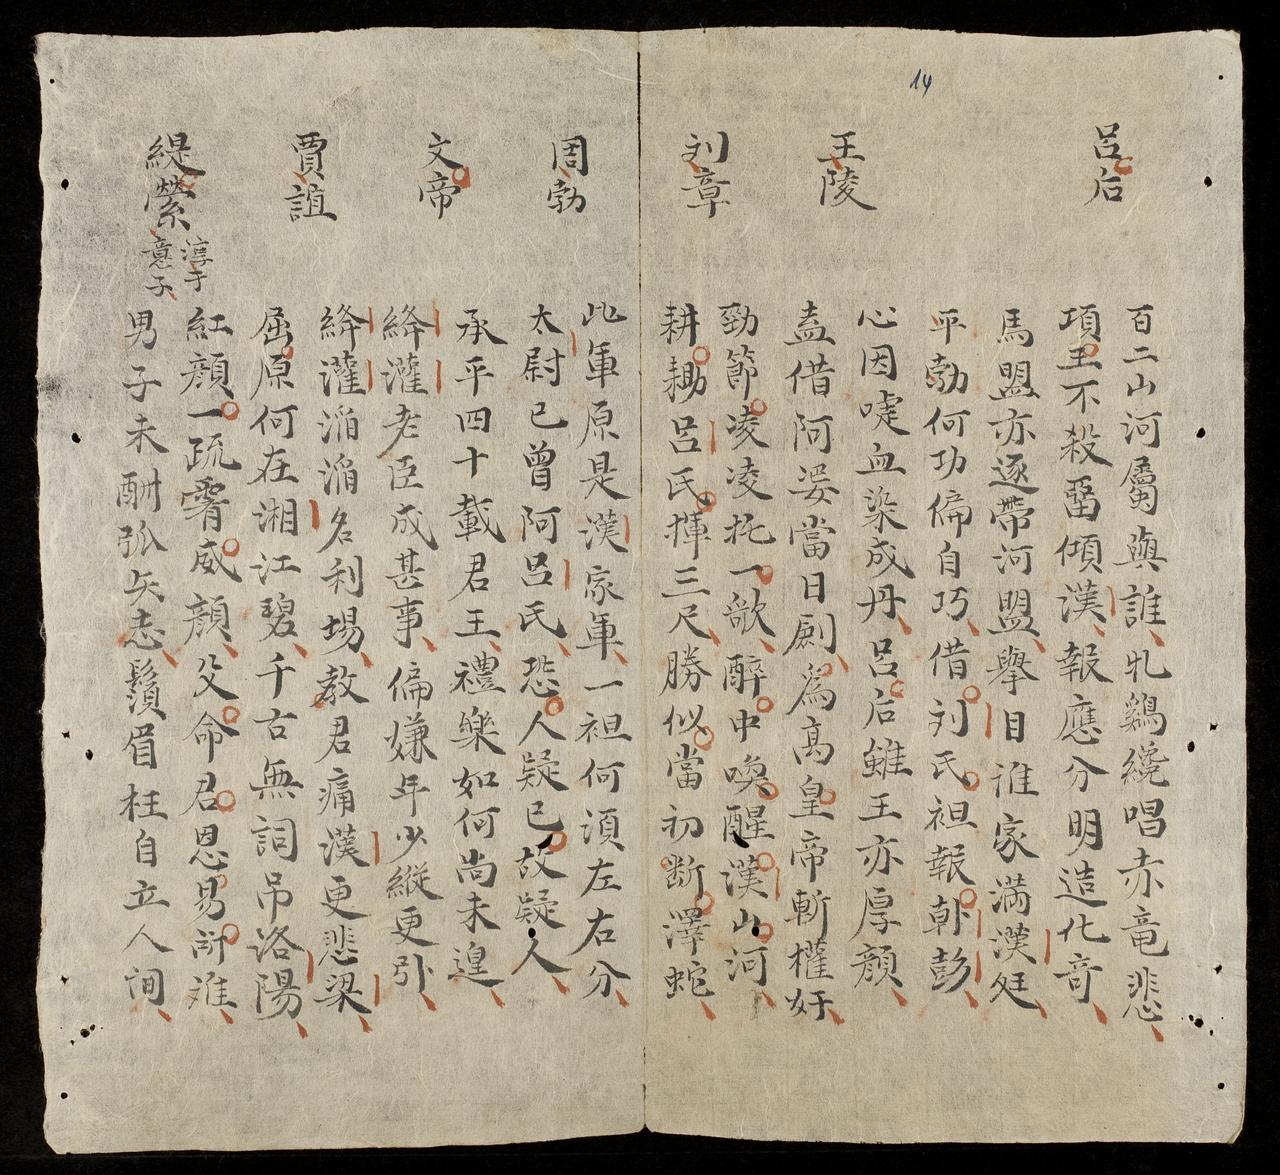 14
呂后
百二山河屬與誰牝鷄纔唱赤竜悲
項王不殺畱傾漢報應分明造化竒
馬盟亦逐帶河盟舉目誰家滿漢廷
平勃何功偏自巧借刘氏袒報韓彭
王陵
心因啑血染成丹呂后雖王亦厚顔
盍借阿姿當日劍爲高皇帝斬權奸
刘章
勁節凌凌托一歌醉中喚醒漢山河
耕耡呂氏揮三尺勝似當初断澤蛇
周勃
此軍原是漢家軍一袒何須左右分
太尉已曾阿呂氏恐人疑已故疑人
文帝
承平四十載君王禮樂如何尚未遑
絳灌老臣成甚事偏嫌年少縱更引
賈誼
絳灌滔滔名利場教君痛漢更悲梁
屈原何在湘江碧千古無詞吊洛陽
緹縈 淳于意子
紅顔一疏霽威顔父命君恩易所难
男子未酬弧矢志鬚眉枉自立人間